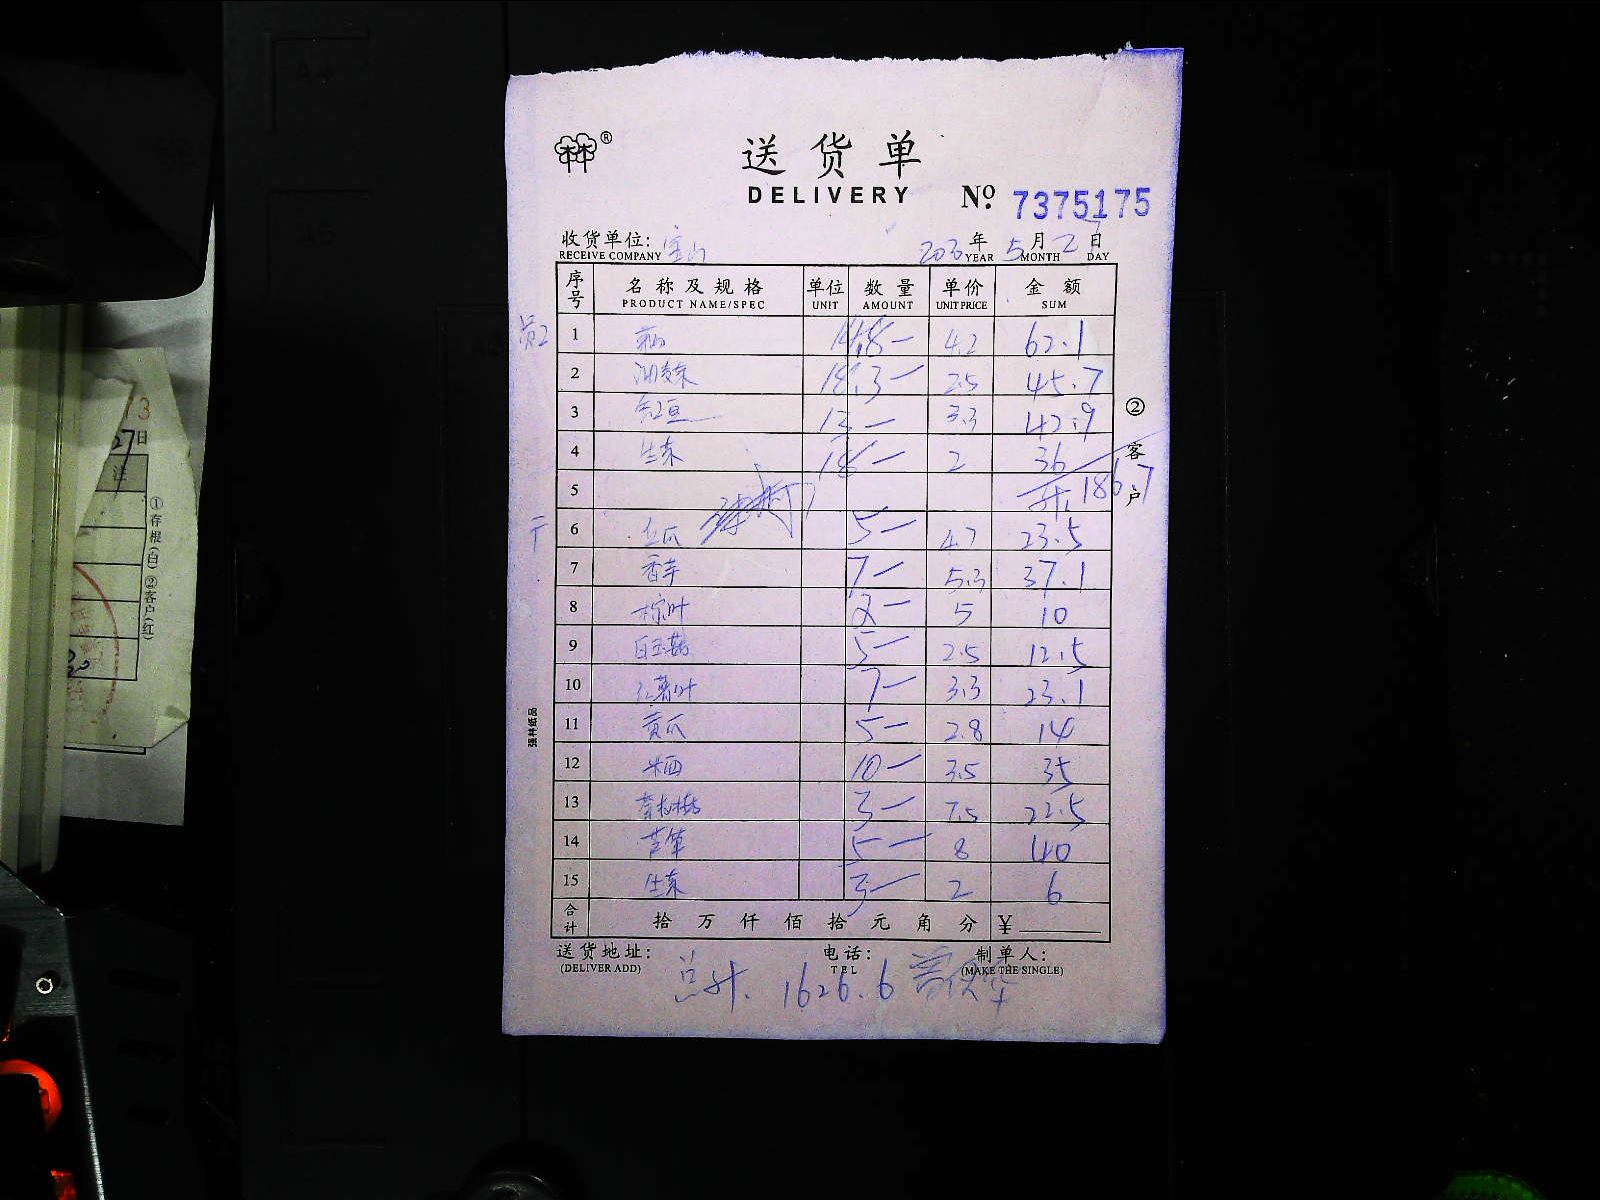 送货单
DELIVERY
No. 7375175
收货单位: 宝山 203年 5月27日
RECEIVE COMPANY YEAR MONTH DAY
序号 名称及规格 单位 数量 单价 金额
PRODUCT NAME/SPEC UNIT AMOUNT UNIT PRICE SUM
1 4.2 62.1
2 油麦菜 18.3 2.5 45.7
3 豇豆 13 3.3 42.9
4 生菜 18 2 36
5 计 186.7
6 5 4.7 23.5
7 香芋 7 5.3 37.1
8 棕叶 2 5 10
9 白玉菇 5 2.5 12.5
10 红薯叶 7 3.3 23.1
11 黄瓜 5 2.8 14
12 米西 10 3.5 35
13 3 7.5 22.5
14 芦笋 5 8 40
15 生菜 3 2 6
合计 拾 万 仟 佰 拾 元 角 分 ¥
送货地址: 电话: 制单人:
(DELIVER ADD) TEL (MAKE THE SINGLE)
总计. 1626.6
②客户
强林纸品
27日
注
①存根(白) ②客户(红)